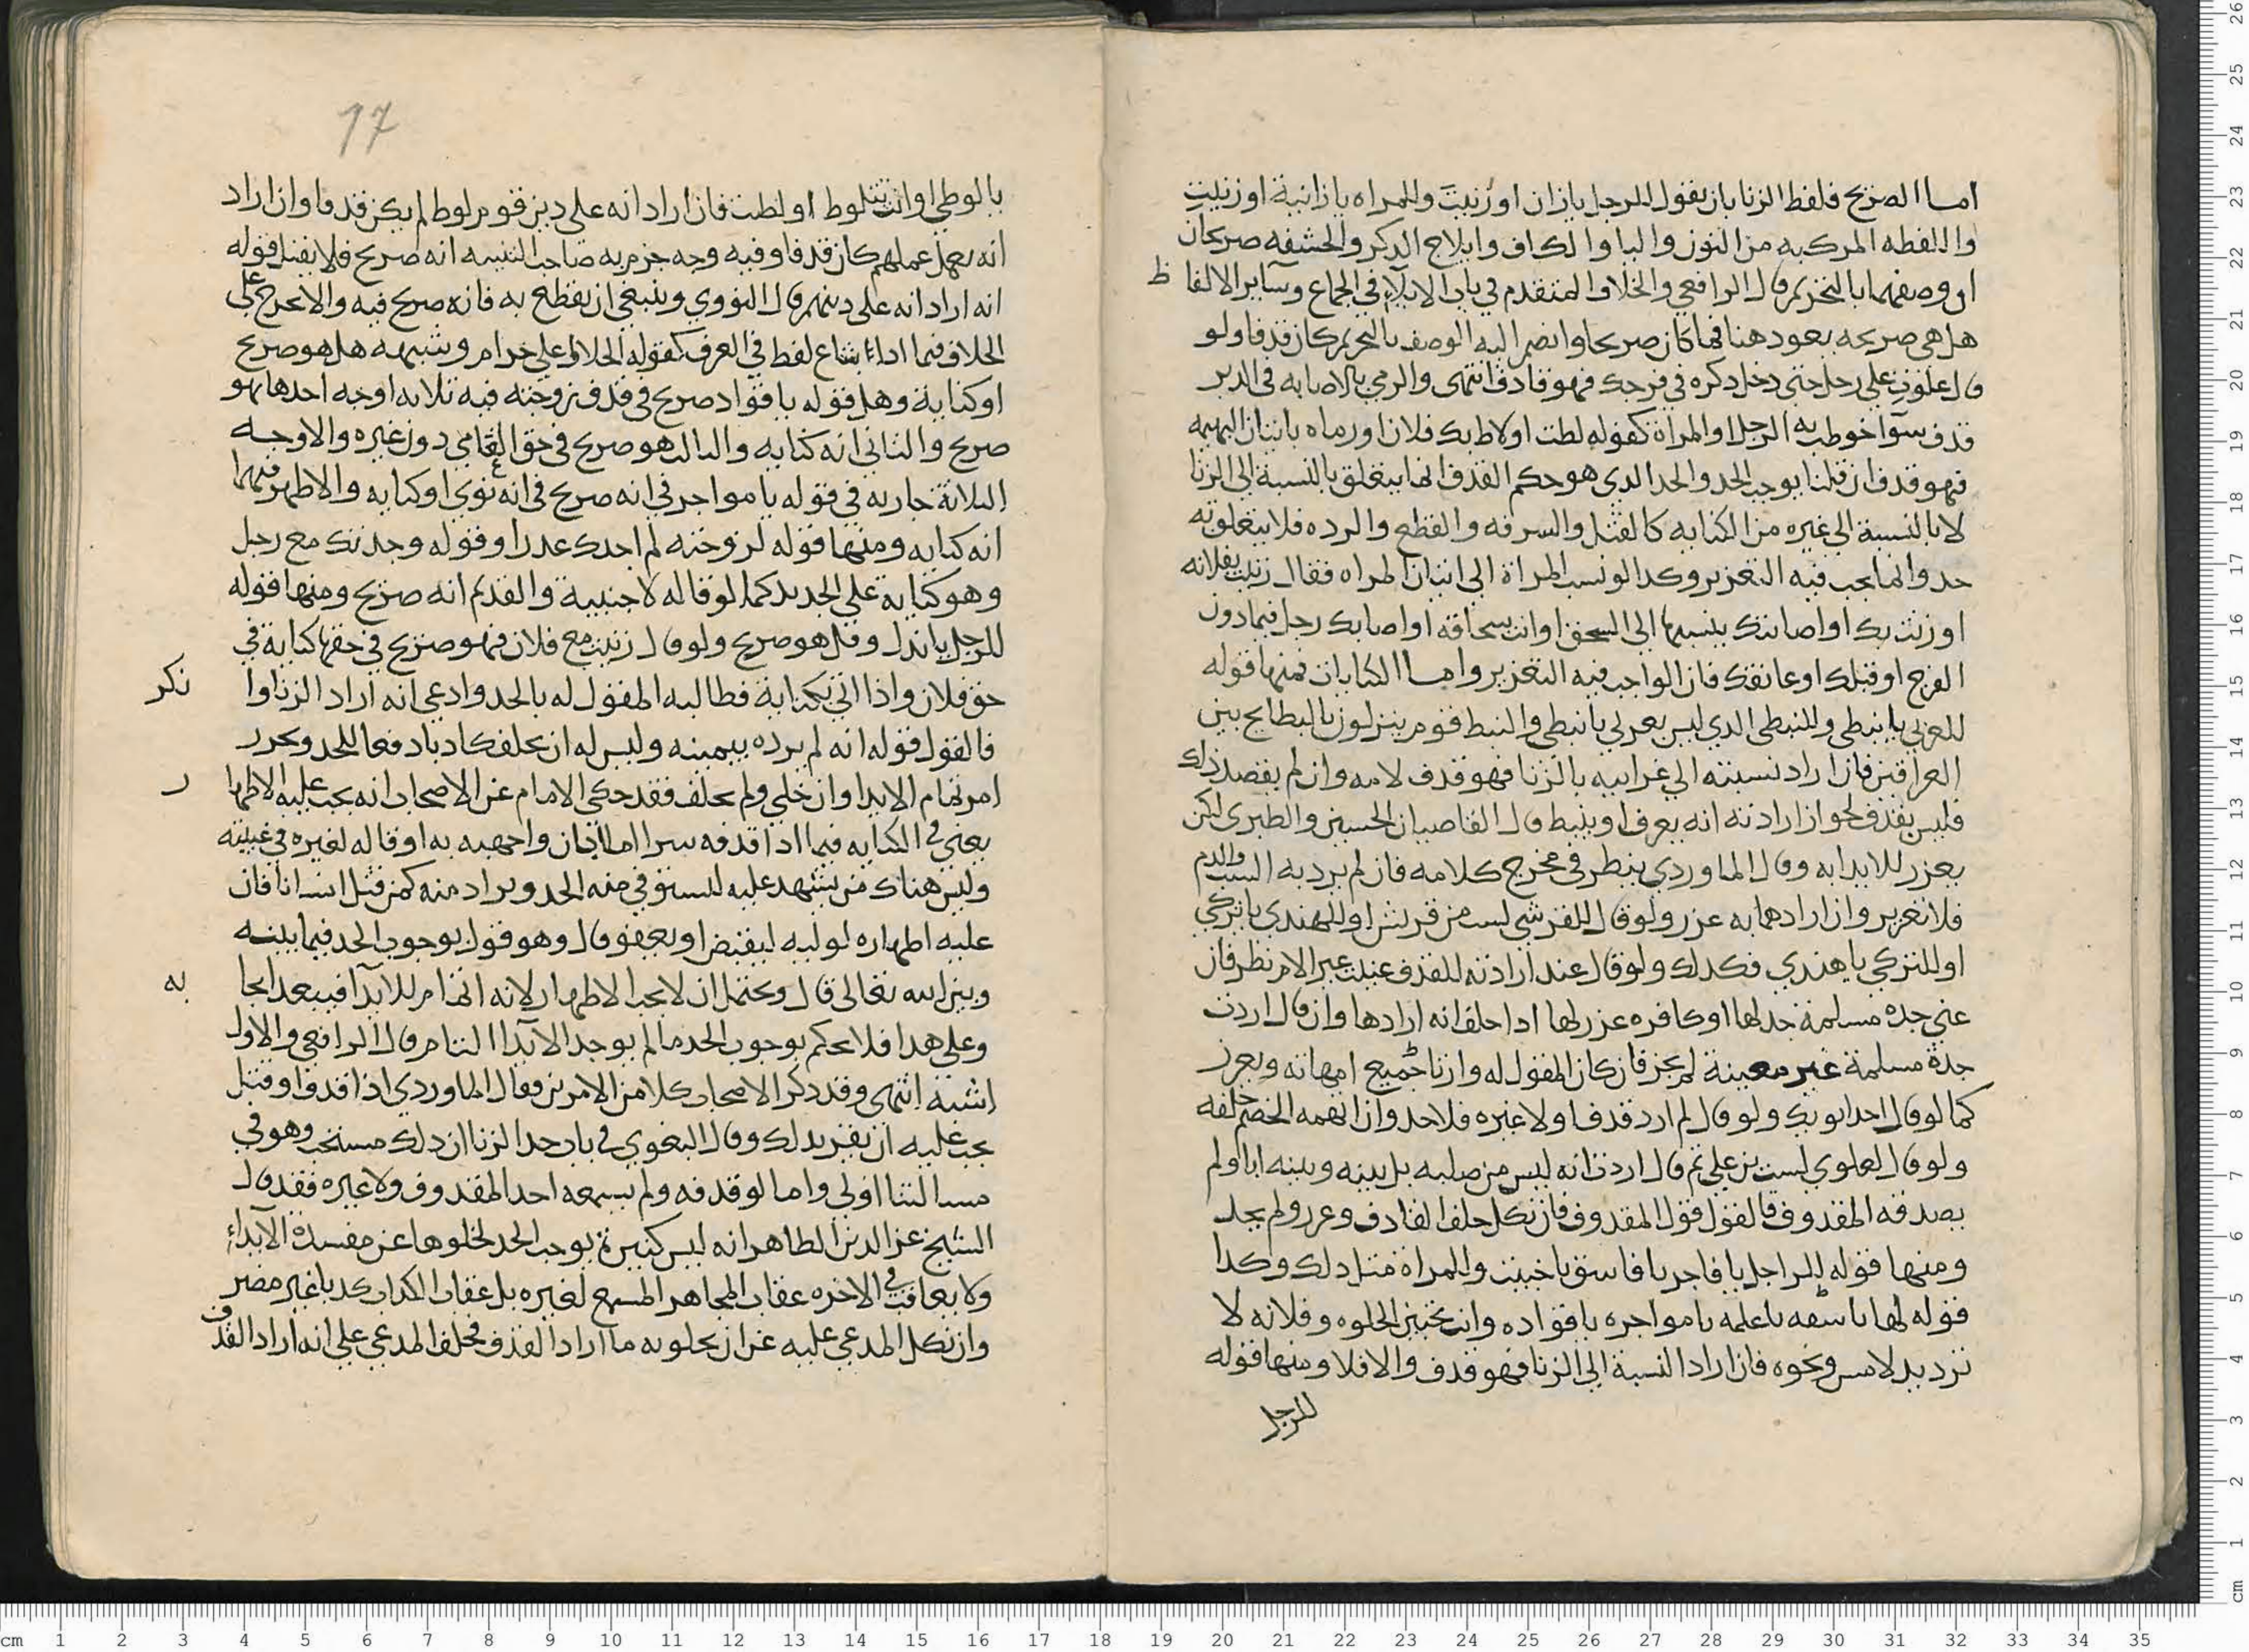 اما الصريح فلفظ الزنا بان يقول للرجل يا زان او زنيتَ وللمراه يا زانية او زنيتِ
واللفظه المركبه من النون واليا والكاف وايلاج الذكر والحشفه صريحان
ان وصفهما بالتحريم قال الرافعي والخلاف المتقدم في باب الايلاء في الجماع وساير الالفاظ
هل هي صريحه يعود هنا فما كان صريحا وانضم اليه الوصف بالتحريم كان قذفا ولو
قال علوتِ على رجل حتى دخل ذكره في فرجك فهو قاذف انتهى والرمي بالاصابه في الدبر
قذف سوا خوطب به الرجل او المراة كقوله لطت او لاط بك فلان او رماه باتيان البهيمه
فهو قذف ان قلنا يوجب الحد والحد الذي هو حكم القذف انما يتعلق بالنسبة الى الزنا
لا بالنسبة الى غيره من الكنايه كالقتل والسرقه والقطع والرده فلا يتعلق به
حد وانما يجب فيه التعزير وكذا لو نسب المراة الى اتيان المراه فقال زنيت بفلانه
او زنت بك او اصابتك ينسبها الى السحق او انت سحاقه او اصابك رجل فيما دون
الفرج او قبلك او عانقك فان الواجب فيه التعزير واما الكنايات فمنها قوله
للعربي يا نبطي وللنبطي الذي ليس بعربي يا نبطي والنبط قوم ينزلون بالبطايح بين
العراقين فان اراد نسبته الى غير ابيه بالزنا فهو قذف لامه وان لم يقصد ذلك
فليس بقذف لجواز ارادته انه يعرف او ينبط قال القاضيان الحسين والطبري لكن
يعزر للايذا به وقال الماوردي ينظر في مخرج كلامه فان لم يرد به السب والذم
فلا تعزير وان ارادهما به عزر ولو قال للقرشي لست من قريش او للهندي يا تركي
او للتركي يا هندي فكذلك ولو قال عند ارادته للقذف عنيت غير الام نظر فان
عنى جدة مسلمة حد لها او كافره عزر لها اذا حلف انه ارادها وان قال اردت
جدة مسلمة غير معينة لم يجز فان كان المقول له وارثا لجميع امهاته ويعزر
كما لو قال احد ابويك ولو قال لم ارد قذفا ولا غيره فلا حد وان اتهمه الخصم حلفه
ولو قال لعلوي لست بن علي ثم قال اردت انه ليس من صلبه بل بينه وبينه ابا ولم
يصدقه المقذوف فالقول قول المقذوف فان نكل حلف القاذف وعزر ولم يحد
ومنها قوله للراجل يا فاجر يا فاسق يا خبيث وللمراة مثل ذلك وكذا
قوله لها يا سفه يا علمه يا مواجره يا قواده وانت تحبين الخلوه وفلانه لا
ترد يد لامس ونحوه فان اراد النسبة الى الزنا فهو قذف والا فلا ومنها قوله
للرجل
17
يا لوطي او انت تتلوط او لطت فان اراد انه على دين قوم لوط لم يكن قذفا وان اراد
انه يعمل عملهم كان قذفا وفيه وجه جزم به صاحب التنبيه انه صريح فلا يقبل قوله
انه اراد انه على دينهم قال النووي وينبغي ان يقطع به فانه صريح فيه والا تخرج على
الخلاف فيما اذا شاع لفظ في العرف كقوله الحلال علي حرام وشبهه هل هو صريح
او كناية وهل قوله يا قواد صريح في قذف زوجته فيه ثلاثه اوجه احدها هو
صريح والثاني انه كنايه والثالث هو صريح في حق العامي دون غيره والاوجه
الثلاثة جاريه في قوله يا مواجر في انه صريح في انه نوي او كنايه والاظهر فيهما
انه كنايه ومنها قوله لزوجته لم اجدك عذرا وقوله وجدتك مع رجل
وهو كناية على الجديد كما لو قاله لاجنبية والقديم انه صريح ومنها قوله
للرجل يا نذل وقيل هو صريح ولو قال زنيت مع فلان فهو صريح في حقها كناية في
حق فلان واذا اتي بكناية فطالبه المقول له بالحد وادعى انه اراد الزنا وا نكر
فالقول قوله انه لم يرده بيمينه وليس له ان يحلف كاذبا دفعا للحد وتحرر
ا من تمام الايذا وان خلى ولم يحلف فقد حكى الامام عن الاصحاب انه يجب عليه الاظها ر
يعني في الكنايه فيما اذا قذفه سرا اما اذا كان واجهه به او قاله لغيره في غيبته
وليس هناك من يشهد عليه ليستوفي منه الحد ويراد منه كمن قتل انسانا فان
عليه اظهاره لوليه ليقتص او يعفو قال وهو قول بوجوب الحد فيما بينه
وبين الله تعالى قال ويحتمل ان لا يجب الاظهار لانه اتمام للايذا فيبعد ايجا به
وعلى هذا فلا يحكم بوجوب الحد ما لم يوجد الايذا التام قال الرافعي والاول
اشبه انتهى وقد ذكر الاصحاب كلا من الامرين فقال الماوردي اذا قذف او قتل
يجب عليه ان يقر بذلك وقال البغوي في باب حد الزنا ان ذلك مستحب وهو في
مسالتنا اولى واما لو قذفه ولم يسمعه احد المقذوف ولا غيره فقد قال
الشيخ عز الدين الظاهر انه ليس كبيرة يوجب الحد لخلوها عن مفسدة الايذاء
ولا يعاقب في الاخره عقاب المجاهر المسمع لغيره بل عقاب الكذاب كذبا غير مضر
وان نكل المدعي عليه عن ان يحلو به ما اراد القذف فحلف المدعي على انه اراد القذف